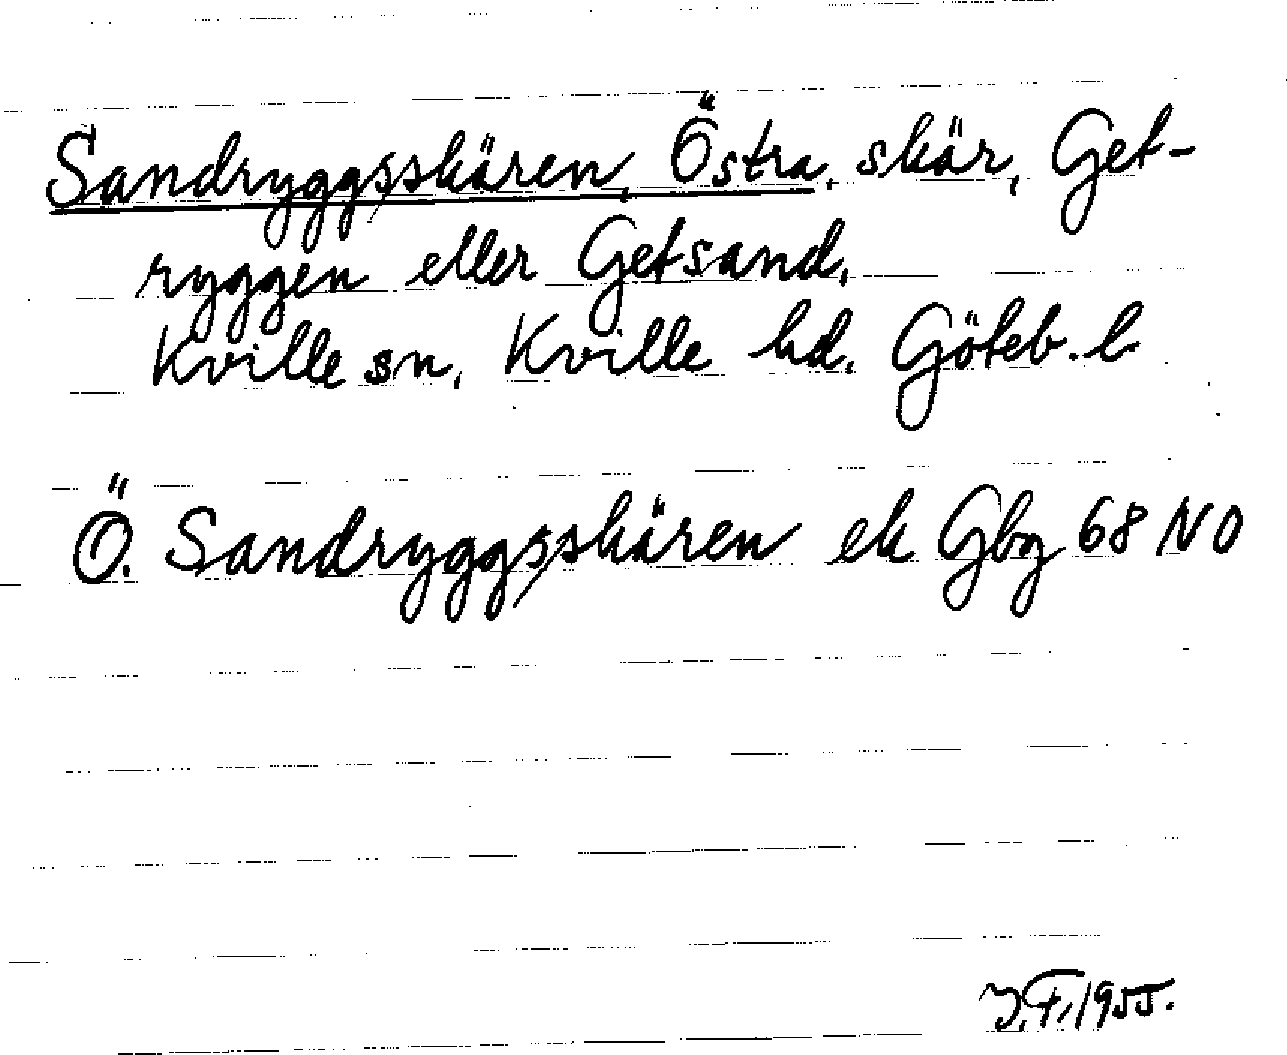 Sandryggsskären, Östra, skär, Get-
ryggen eller Getsand,
Kville sn, Kville hd. Göteb. l.
Ö. Sandryggsskären ek Gbg 68 NO
J.F. 1955.